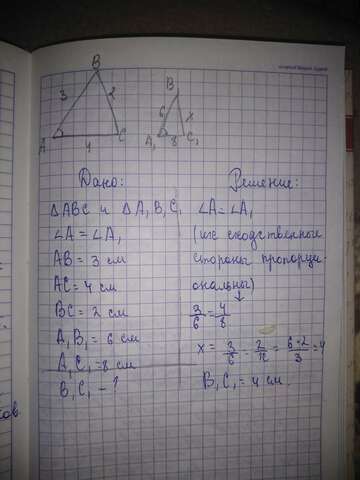 B
3
2
A
C
4
B
6
x
A₁
8
C₁
Дано:
△ABC и △A₁B₁C₁
∠A = ∠A₁
AB = 3 см
AC = 4 см
BC = 2 см
A₁B₁ = 6 см
A₁C₁ = 8 см
B₁C₁ - ?
Решение:
∠A = ∠A₁
(их сходственные
стороны пропорци-
ональны)
↓
3/6 = 4/8
x = 3/6 = 2/x = 6·2/3 = 4
B₁C₁ = 4 см